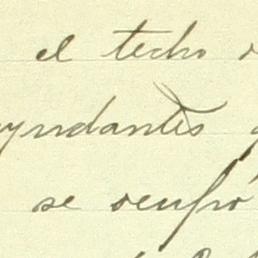 el techo
ayudantes
se ocupó